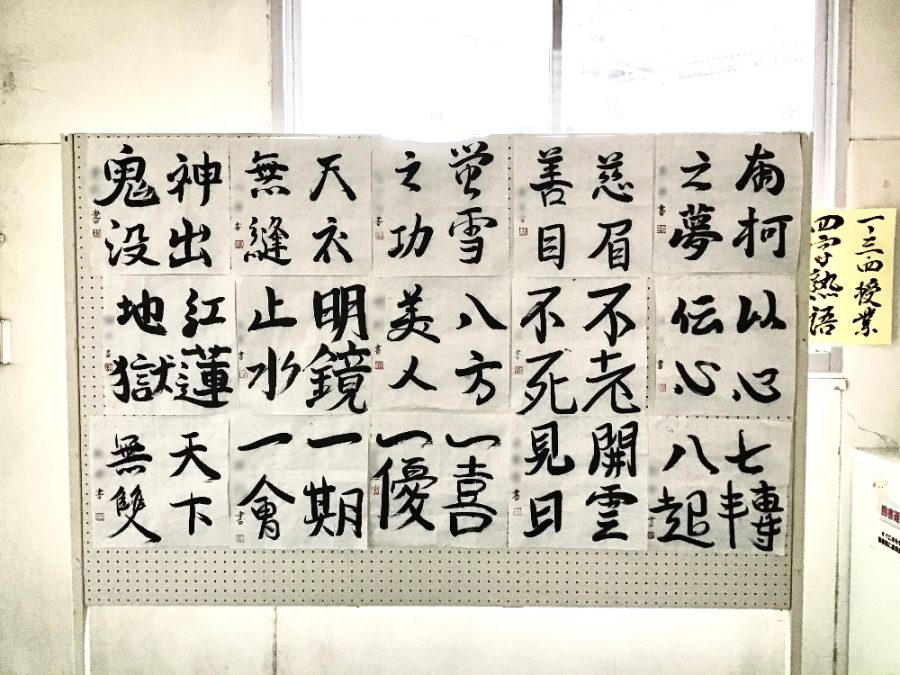 一・三・四授業
四字熟語
南柯
之夢
書
慈眉
善目
蛍雪
之功
書
天衣
無縫
書
神出
鬼没
書
以心
伝心
書
不老
不死
書
八方
美人
書
明鏡
止水
書
紅蓮
地獄
書
七轉
八起
書
開雲
見日
書
一喜
一優
書
一期
一會
書
天下
無雙
書